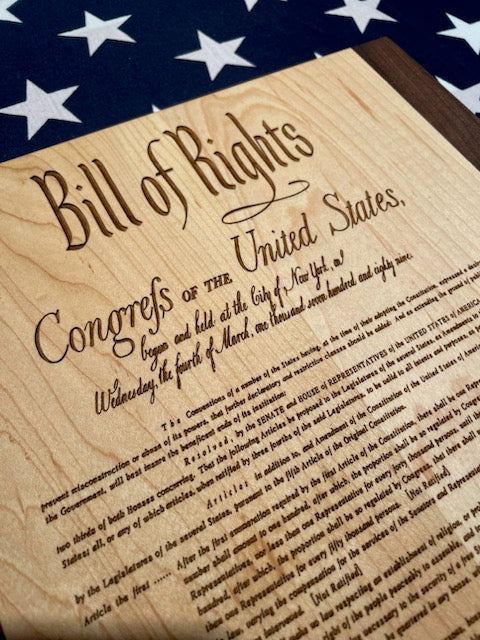 Bill of Rights
Congreſs OF THE United States,
begun and held at the City of New York, on
Wednesday, the fourth of March, one thousand seven hundred and eighty nine.
The Conventions of a number of the States having, at the time of their adopting the Constitution, expressed a
prevent misconstruction or abuse of its powers, that further declaratory and restrictive clauses should be added: And as extending the ground of
the Government, will best insure the beneficent ends of its institution:
Resolved, by the SENATE and HOUSE of REPRESENTATIVES of the UNITED STATES of
two thirds of both Houses concurring. That the following Articles be proposed to the Legislatures of the several States, as
States; all, or any of which articles, when ratified by three fourths of the said Legislatures, to be valid to all intents and purposes, as
Articles in addition to, and Amendment of the Constitution of the United States of
by the Legislatures of the several States, pursuant to the fifth Article of the Original Constitution.
Article the first ..... After the first enumeration required by the first Article of the Constitution, there shall be one
number shall amount to one hundred, after which, the proportion shall be so regulated by
Representatives, nor less than one Representative for every forty thousand persons, until
hundred, after which, the proportion shall be so regulated by Congress, that there shall
than one Representative for every fifty thousand persons. [Not Ratified]
law, varying the compensation for the services of the Senators and
[Not Ratified]
no law respecting an establishment of religion, or
right of the people peaceably to assemble, and
necessary to the security of a
quartered in any house,